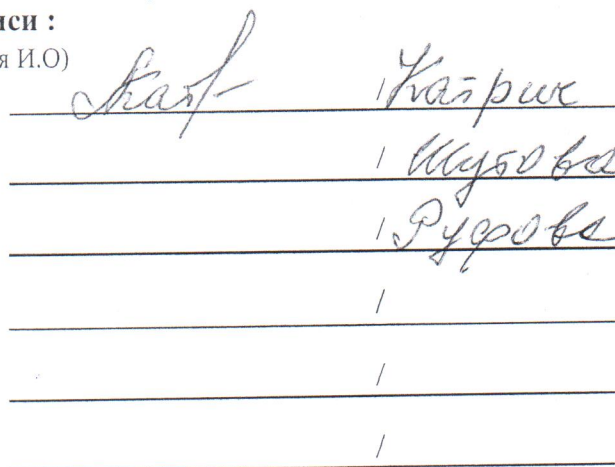 иси :
я И.О)
/ Кайрис
/ Шубова
/ Руфова
/
/
/